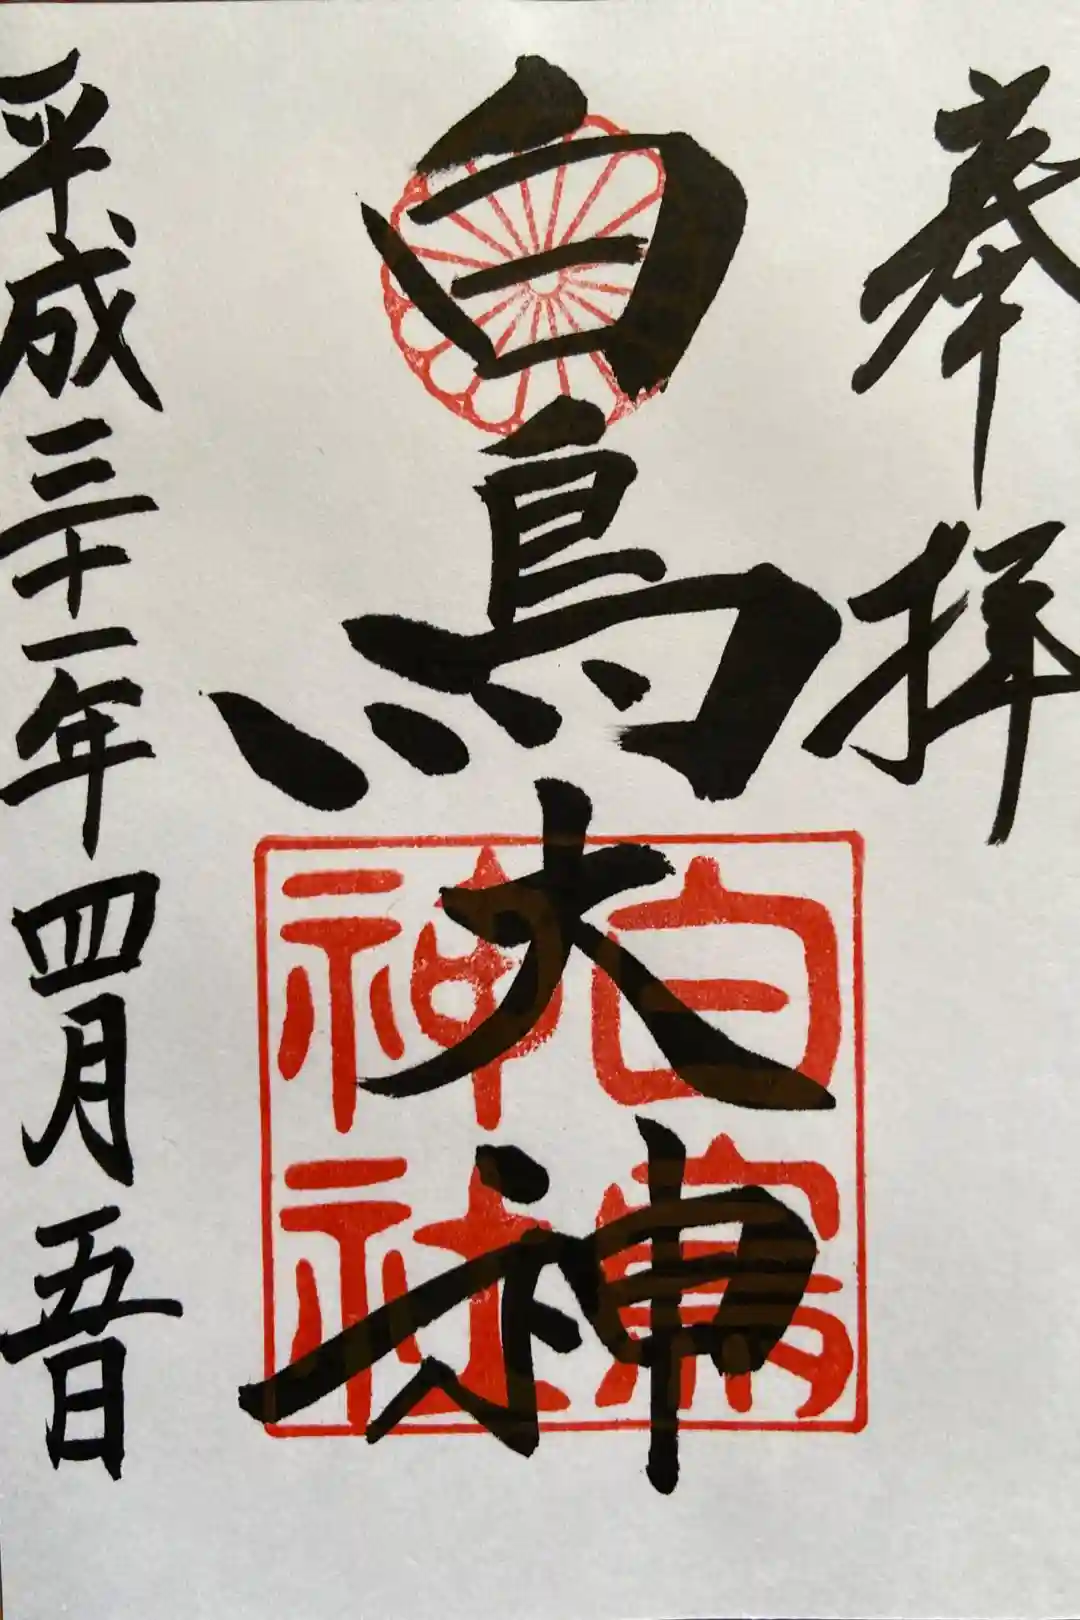 奉拝
白鳥大神
白鳥神社
平成三十一年四月五日